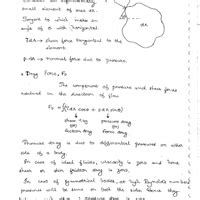 small element of area dA.
Tangent to which makes an
angle of θ with horizontal
τdA → shear force tangential to the
element
p.dA → normal force due to pressure
dA
• Drag Force, FD
The component of pressure and shear forces
in the direction of flow
shear drag
or
friction drag
pressure drag
(or)
form drag
Pressure drag is due to differential pressures on either
side of a body.
In case of ideal fluids, viscosity is zero and hence
shear or skin friction drag is zero.
In case of symmetrical bodies, at high Reynolds number
pressure will be same on both the sides hence they